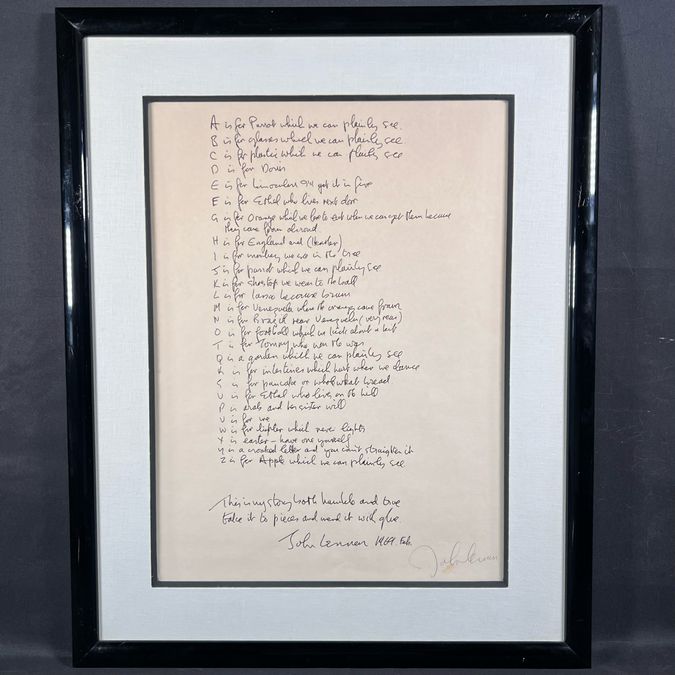 A is for Parrot which we can plainly see.
B is for glasses which we can plainly see
C is for plastic which we can plainly see
D is for Doris
E is for binoculars I'll get it in five
F is for Ethel who lives next door
G is for Orange which we love to eat when we can get them because
they come from abroad
H is for England and (Heather)
I is for monkey we see in the tree
J is for parrot which we can plainly see
K is for shoetop we wear to the ball
L is for lasso because brown
M is for Venezuela where the oranges come from
N is for Brazil near Venezuela (very near)
O is for football which we kick about a bit
T is for Tommy who won the war
Q is a garden which we can plainly see
R is for intestines which hurt when we dance
S is for pancake or whole wheat bread
U is for Ethel who lives on the hill
P is arab and her sister will
V is for me
W is for lighter which never lights
X is easter - have one yourself
Y is a crooked letter and you can't straighten it
Z is for Apple which we can plainly see
This is my story both humble and true
take it to pieces and mend it with glue
John Lennon 1969. Feb.
John Lennon